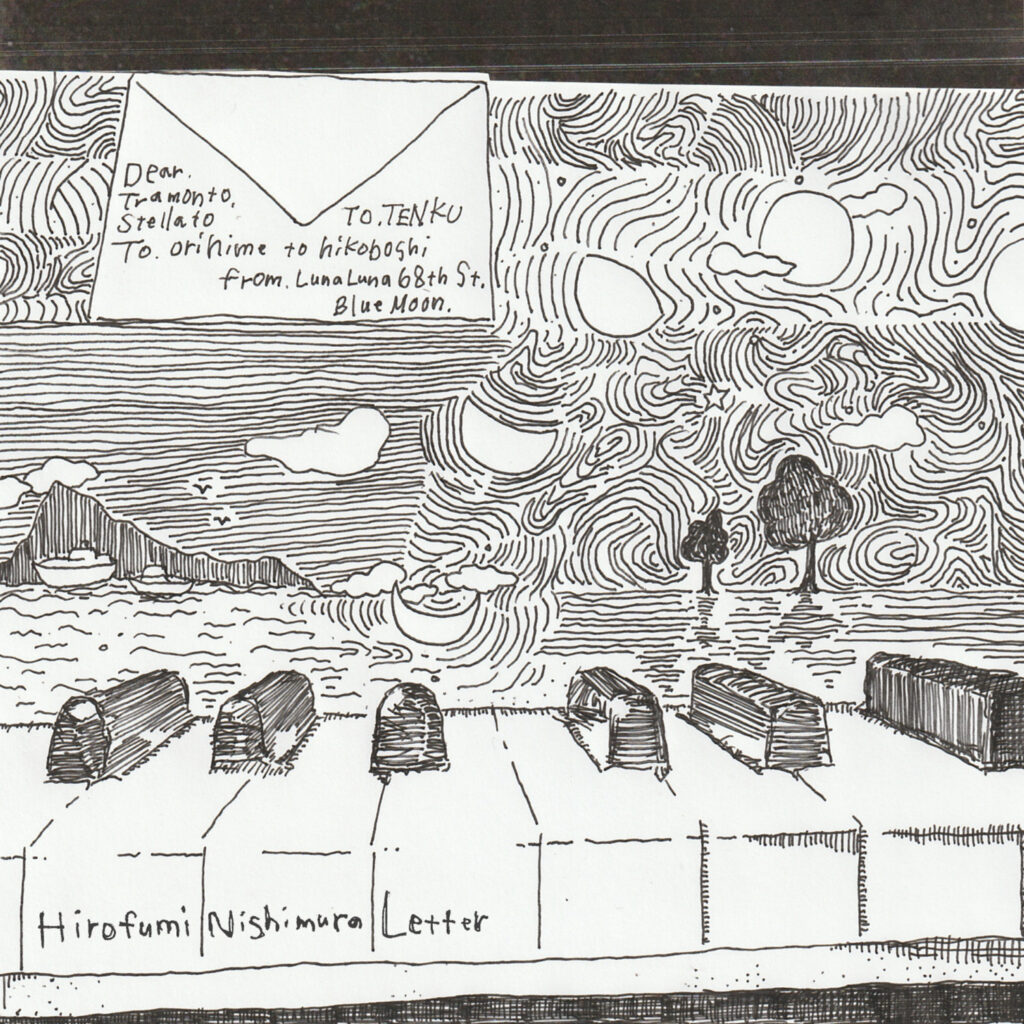 Dear.
Tramonto.
Stella to
TO.TENKU
To. orihime to hikoboshi
from. LunaLuna 68th St.
Blue Moon.
Hirofumi Nishimura Letter